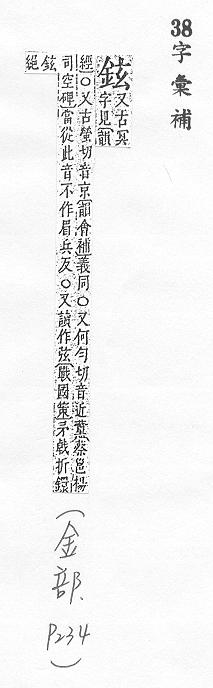 38字彙補
鉉 又古冥
字見韻
經○又古螢切音京韻會補義同○又何勻切音近蔡邕楊
司空碑當從此音不作眉兵反○又譌作弦戰國策矛戟折鐶
鉉
絕
(金部. P234)